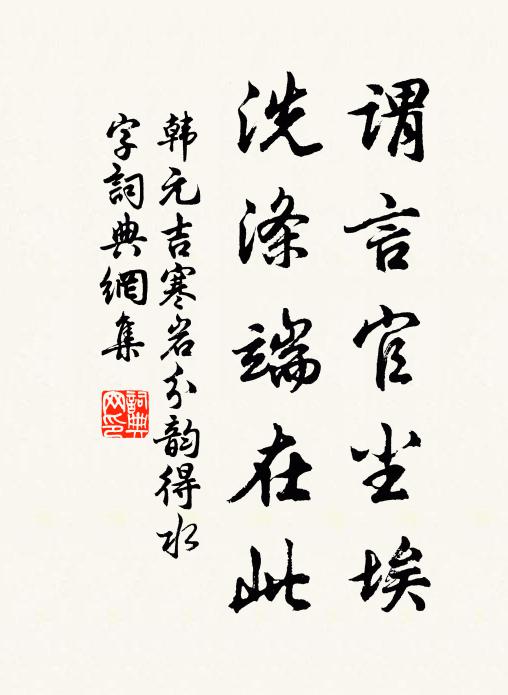 谓言官尘埃
洗涤端在此
韩元吉寒岩分韵得水
字詞典網集
詞典
网印